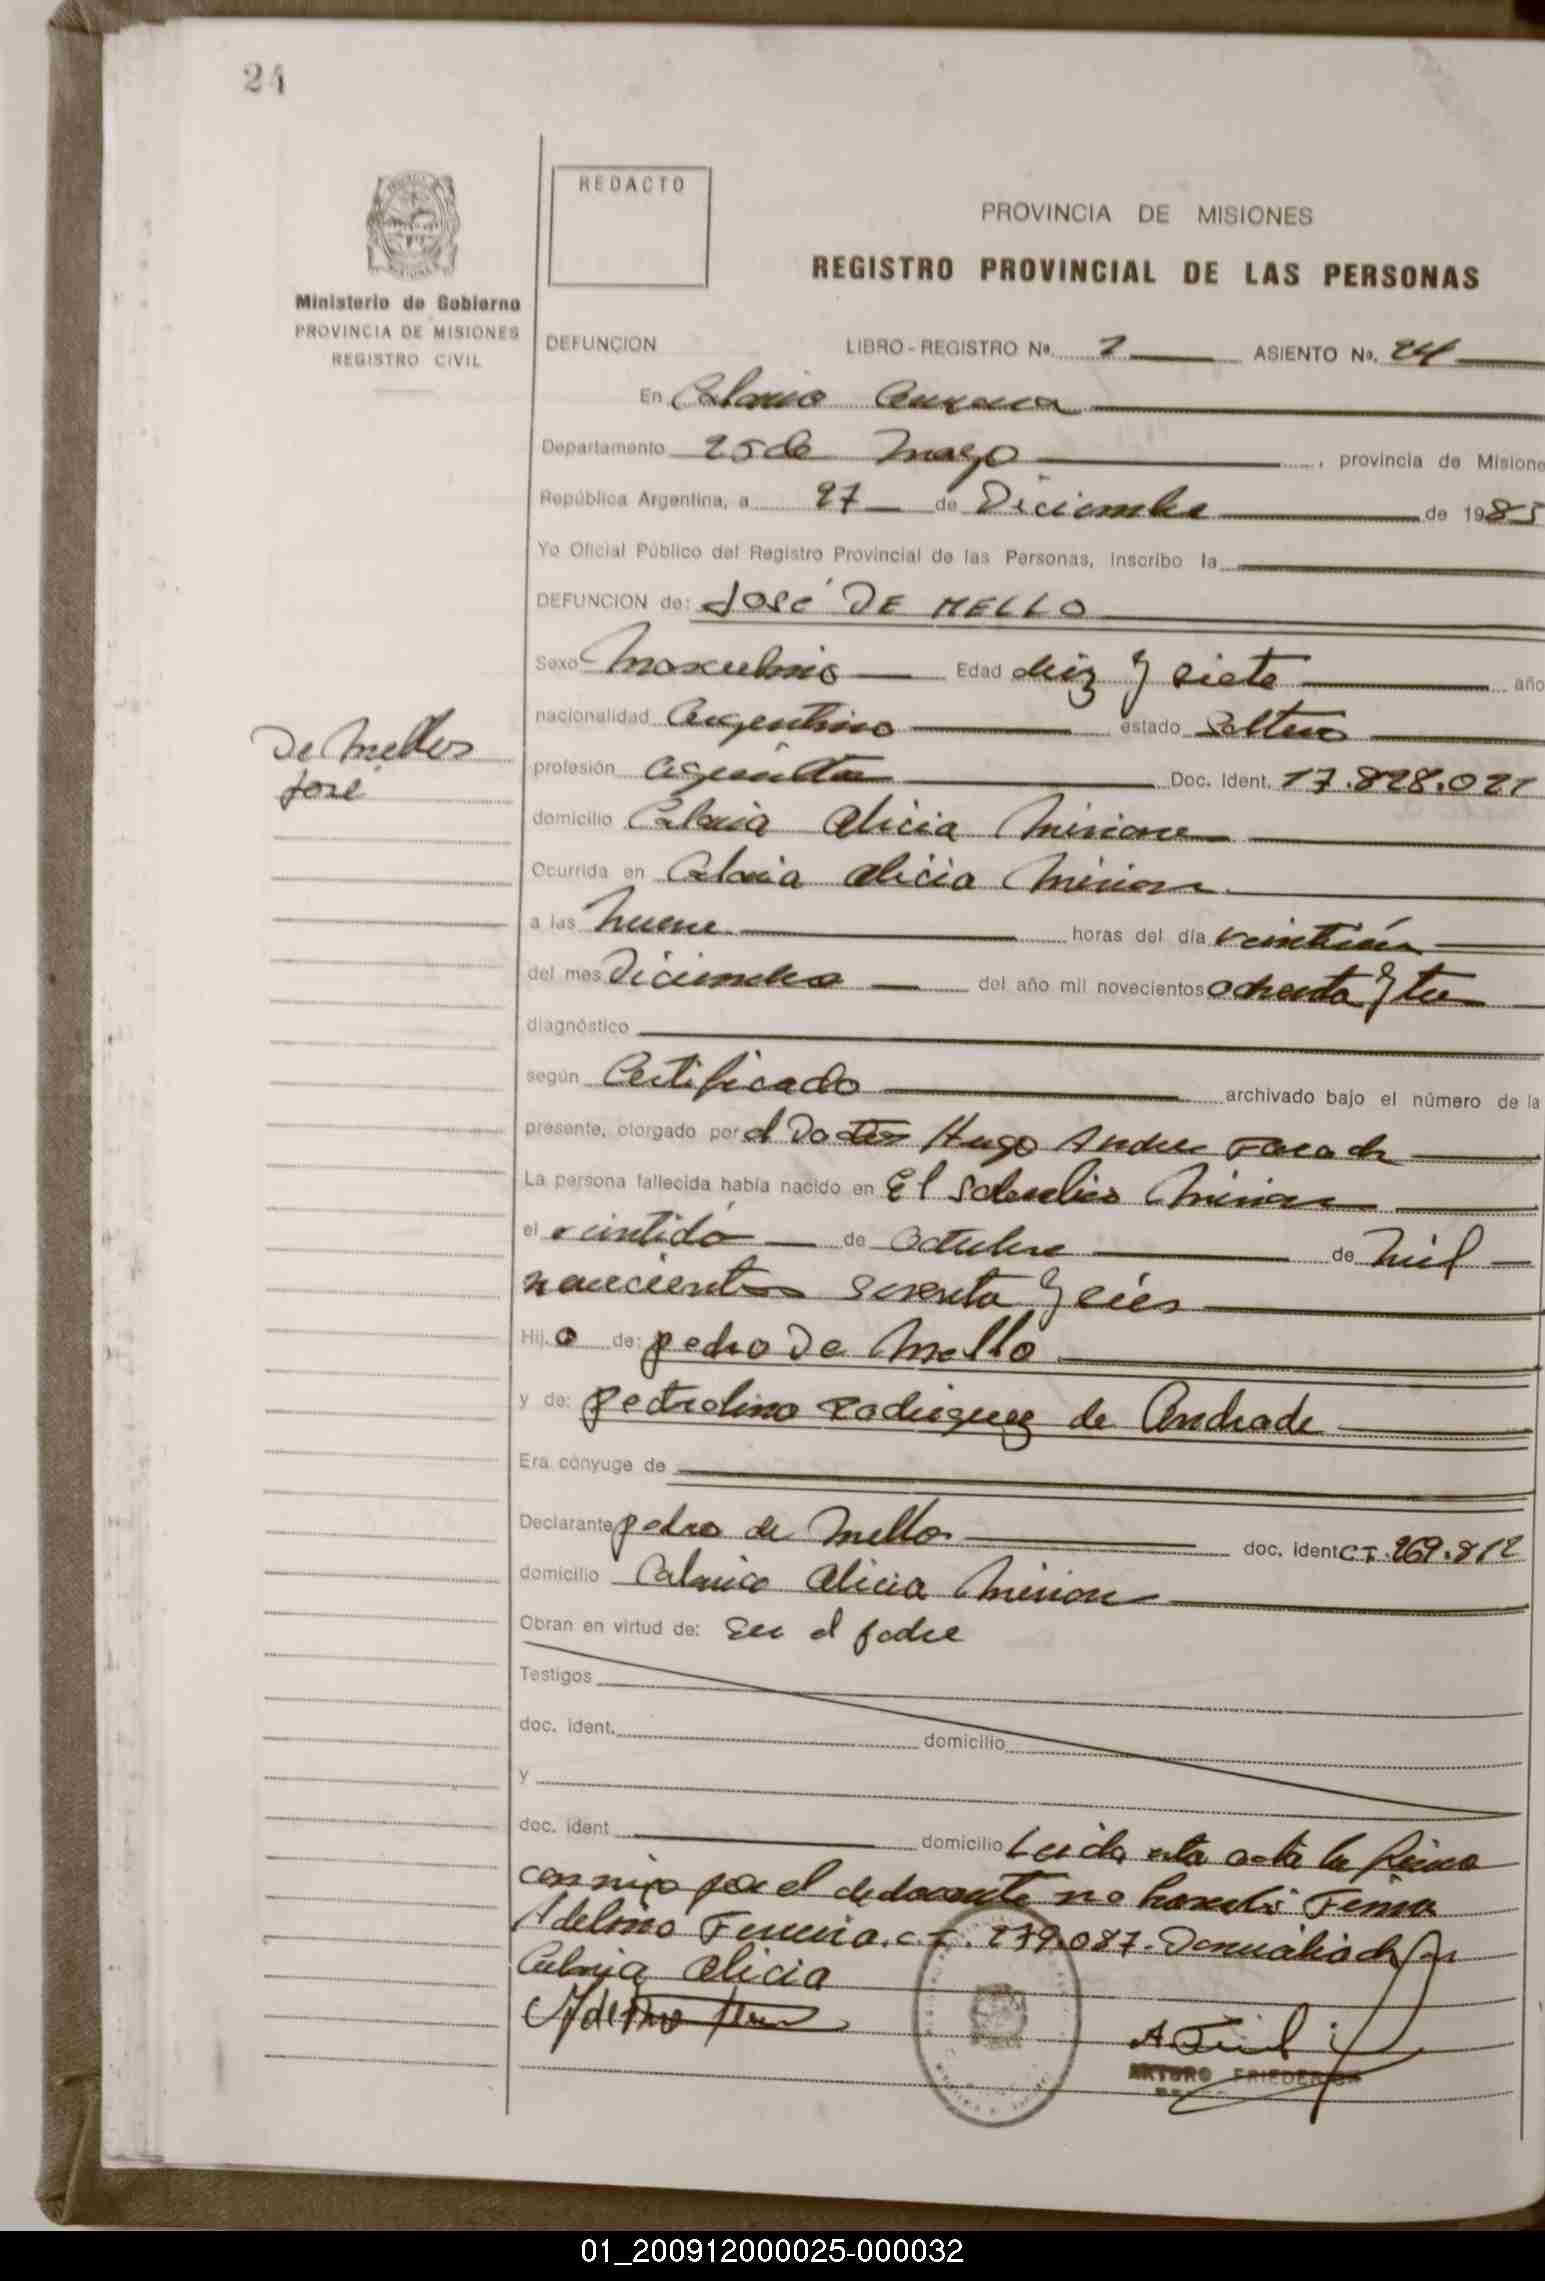 24
REDACTO
PROVINCIA DE MISIONES
REGISTRO PROVINCIAL DE LAS PERSONAS
Ministerio de Gobierno
PROVINCIA DE MISIONES
REGISTRO CIVIL
DEFUNCION LIBRO - REGISTRO Nº. ASIENTO No. 24
En Colonia Aurora
Departamento 25 de Mayo , provincia de Misione
República Argentina, a 27 de Diciembre de 1983
Yo Oficial Público del Registro Provincial de las Personas, inscribo la
DEFUNCION de: José DE MELLO
Sexo Masculino Edad diez y siete año
nacionalidad Argentino estado Soltero
De Mello
José
profesión agricultor Doc. Ident. 17.828.021
domicilio Colonia Alicia Misiones
Ocurrida en Colonia Alicia Misiones
a las nueve horas del día veintiún
del mes Diciembre del año mil novecientos ochenta y tres
diagnóstico
según Certificado archivado bajo el número de la
presente, otorgado por el Doctor Hugo Andres
La persona fallecida había nacido en El Soberbio Misiones
el veintidós de Octubre de mil
novecientos sesenta y seis
Hijo de: pedro De Mello
y de: Rodriguez de Andrade
Era cónyuge de
Declarante pedro de Mello doc. ident CI. 269.812
domicilio Colonia Alicia Misiones
Obran en virtud de: Ser el padre
Testigos
doc. ident. domicilio
y
doc. ident domicilio Leida esta acta la firma
conmigo por el declarante no hacerlo Firma
Adelino Ferreira. C.I. 279.087. Domiciliado en
Colonia Alicia
ARTURO FRIEDERICH
01_200912000025-000032